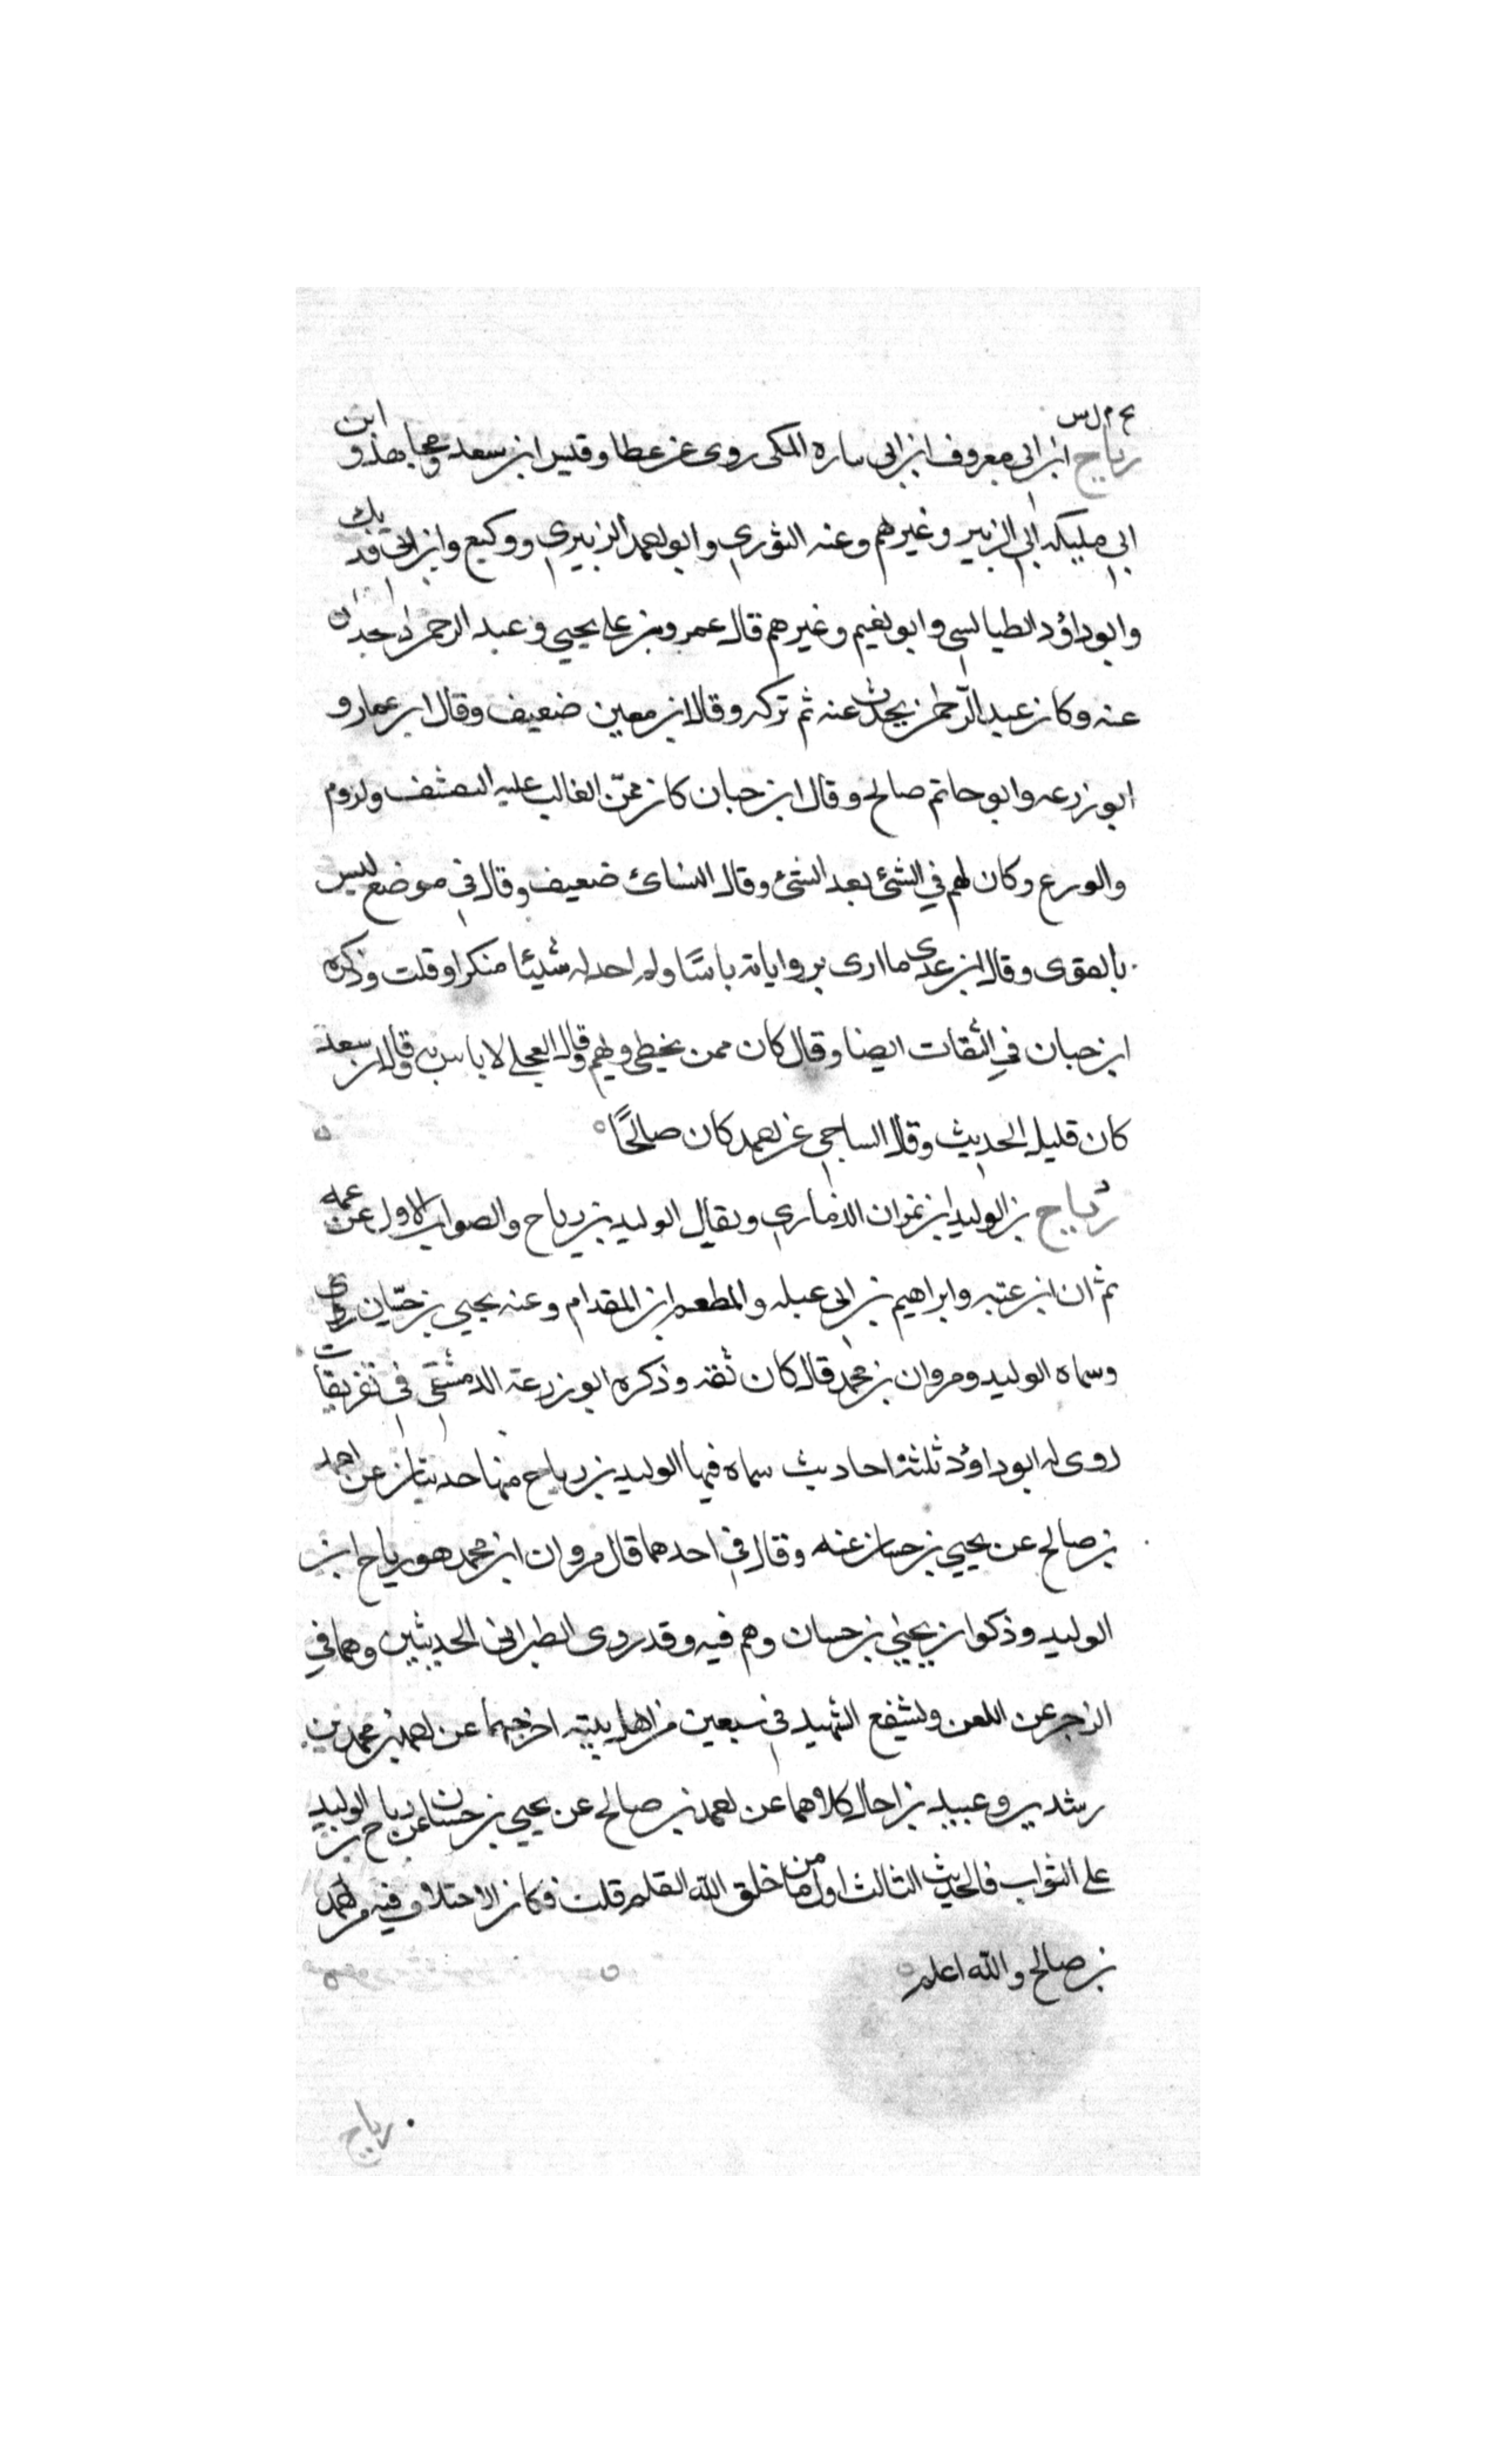 ع م ل س
رباح ابن ابي معروف ابن ابي ساره المكى روى عن عطا وقيس ابن سعد ومجاهد و ابن
ابي مليكه ابي الزبير وغيرهم وعنه الثوري وابو احمد الزبيري ووكيع وابن ابي فديك
وابو داؤد الطيالسي وابو نعيم وغيرهم قال عمرو بن على يحيي وعبد الرحمن لا يحدثان
عنه وكان عبد الرّحمٰن يحدث عنه ثم تركه وقال ابن معين ضعيف وقال ابن عمار و
ابو زرعه وابو حاتم صالح وقال ابن حبان كان ممّن الغالب عليه التقشف ولزوم
والورع وكان لهم في الشئ بعد الشئ وقال النسائ ضعيف وقال في موضع ليس
بالقوى وقال ابن عدى ما ارى برواياته باسًا ولم اجد له شيئا منكرا وقلت وذكره
ابن حبان في الثقات ايضا وقال كان ممن يخطى ويهم وقال العجلى لا باس به وقال ابن سعد
كان قليل الحديث وقال الساجي عن احمد كان صالحًا
رباح بن الوليد ابن نمران الذماري ويقال الوليد بن رباح والصواب الاول عن عمه
نمران ابن عتبه وابراهيم بن ابى عبله والمطعم ابن المقدام وعنه يحيي بن حسّان روى
وسماه الوليد ومروان بن محمد قال كان ثقة وذكره ابو زرعة الدمشقي في تفريقات
روى له ابو داؤد ثلثة احاديث سماه فيها الوليد بن رباح منها حديثان عن احمد
بن صالح عن يحيي بن حسان عنه وقال في احدهما قال مروان ابن محمد هو رباح ابن
الوليد وذكوا ان يحيٰي بن حسان وهم فيه وقد روى الطبراني الحديثين وهما في
الزجر عن اللعن ولشفع الشهيد في سبعين من اهل بيته اخرجهما عن احمد بن محمد بن
رشدين وعبيد بن احال كلاهما عن احمد بن صالح عن يحيي بن حسان عن رباح بن الوليد
على الثواب فالحديث الثالث اول ما من خلق الله القلم قلت فكان الاختلاف فيه من احمد
بن صالح والله اعلم
رباح